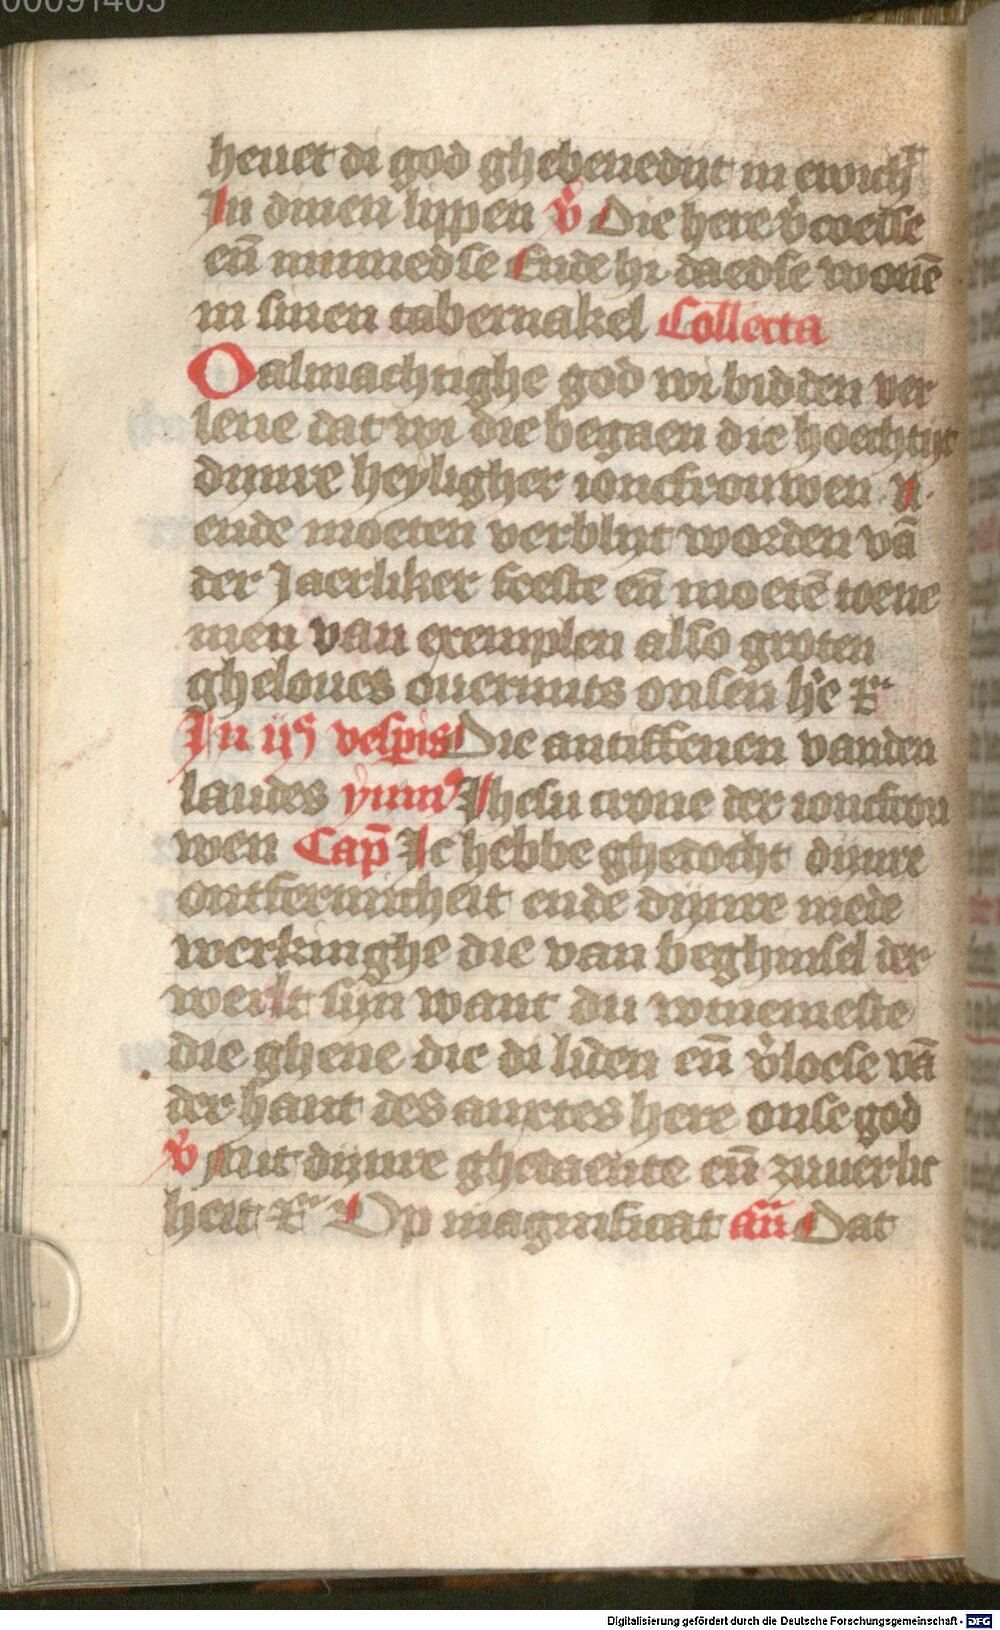 00091405
heuet di god ghebenedijt in ewich^t
In dinen lippen v̾ Die here v̾coesse
en̄ minnedse Ende hi daedse wonē
in sinen tabernakel Collecta
O almachtighe god wi bidden ver
lene dat wi die begaen die hoechtijt
dijnre heyligher ioncfrouwen .N.
ende moeten verblijt worden vā
der Jaerliker feeste en̄ moetē toene
men van exemplen also groten
gheloues ouermits onsen h̾e ⁊c̄
In ijs vespis Die antiffenen vanden
laudes ymn⁹ Jhesu crone der ioncfrou
wen Cap̄ Ic hebbe ghedocht dijnre
ontfermicheit ende dijnre mede
werkinghe die van beghinsel der
werlt sijn want du wtnemeste
die ghene die di liden en̄ v̾loese vā
der hant des anxtes here onse god
v̾ Mit dijnre ghedaente en̄ zuuerlic
heit ⁊c̄ Op magnificat an̄ Dat
Digitalisierung gefördert durch die Deutsche Forschungsgemeinschaft - DFG